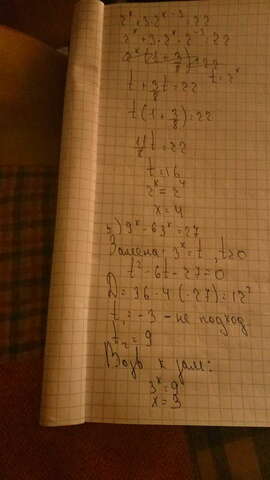 2ˣ+3·2ˣ⁻³=22
2ˣ+3·2ˣ·2⁻³=22
2ˣ(1+3/8)=22
t=2ˣ
t+3/8t=22
t(1+3/8)=22
11/8t=22
t=16
2ˣ=2⁴
x=4
5)9ˣ-6·3ˣ=27
Замена: 3ˣ=t, t>0
t²-6t-27=0
D=36-4·(-27)=12²
t₁=-3-не подход.
t₂=9
Возв к зам:
3ˣ=9
x=3